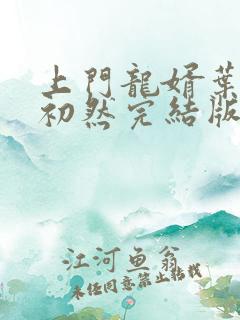 上門龍婿葉
初然完結版
江河鱼翁
未经同意禁止转载